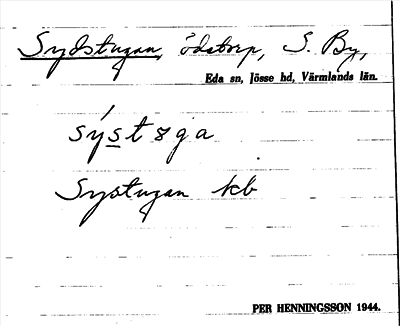 Sydstugan, Ödstorp, S. By,
Eda sn, Jösse hd, Värmlands län.
sýstøga
Systugan kb
PER HENNINGSSON 1944.